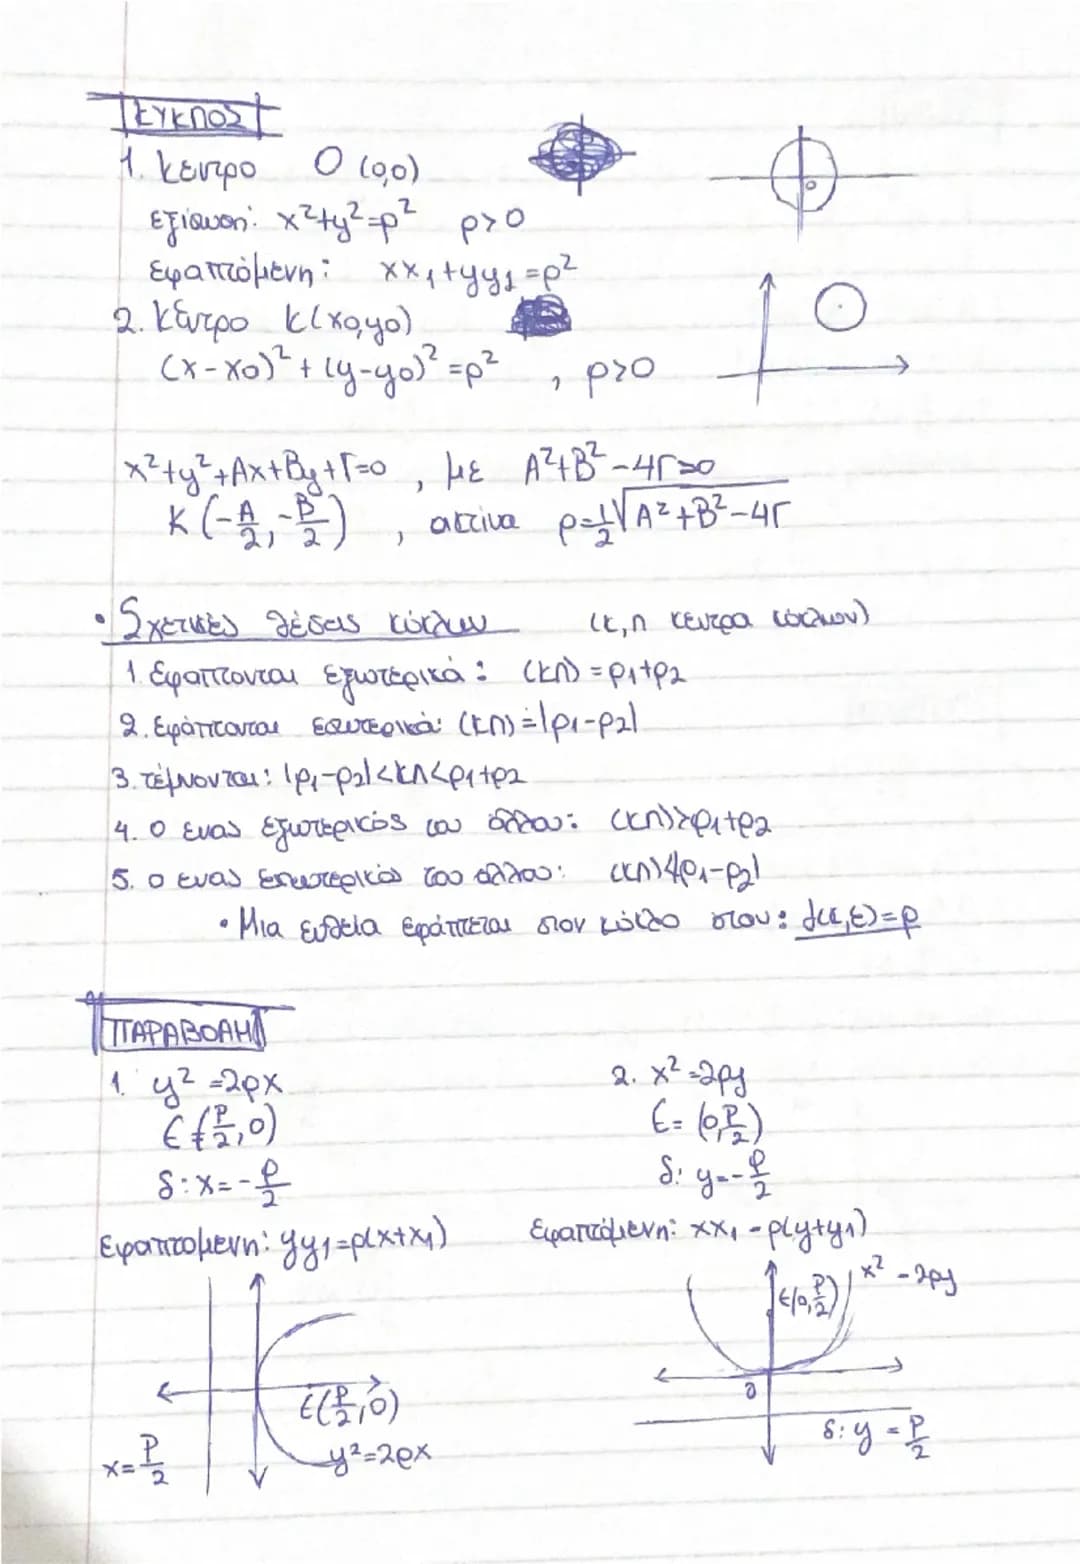 ΚΥΚΛΟΣ
1. Κεντρο Ο (0,0)
Εξίσωση: x²+y²=ρ² ρ>0
Εφαπτόμενη: xx₁+yy₁=ρ²
2. Κέντρο Κ(x₀,y₀)
(x-x₀)²+(y-y₀)²=ρ² , ρ>0
x²+y²+Ax+By+Γ=0 , με Α²+Β²-4Γ>0
Κ(-A/2, -B/2) , ακτίνα ρ=1/2√Α²+Β²-4Γ
• Σχετικές θέσεις κύκλων (Κ,Λ κεντρα κύκλων)
1. Εφαπτονται εξωτερικά: (ΚΛ)=ρ₁+ρ₂
2. Εφάπτονται εσωτερικά: (ΚΛ)=|ρ₁-ρ₂|
3. τέμνονται: |ρ₁-ρ₂|<ΚΛ<ρ₁+ρ₂
4. Ο ενας εξωτερικός του άλλου: (ΚΛ)>ρ₁+ρ₂
5. ο ενας εσωτερικός του άλλου: (ΚΛ)<|ρ₁-ρ₂|
• Μια ευθεία εφάπτεται στον κύκλο όταν: d(Κ,ε)=ρ
ΠΑΡΑΒΟΛΗ
1. y²=2ρx 2. x²=2ρy
Ε(ρ/2,0) Ε=(0,ρ/2)
δ: x=-ρ/2 δ: y=-ρ/2
Εφαπτομενη: yy₁=ρ(x+x₁) Εφαπτόμενη: xx₁-ρ(y+y₁)
Ε(0,ρ/2) x²-2ρy
Ε(ρ/2,0) 0
y²=2ρx δ: y=ρ/2
x=ρ/2